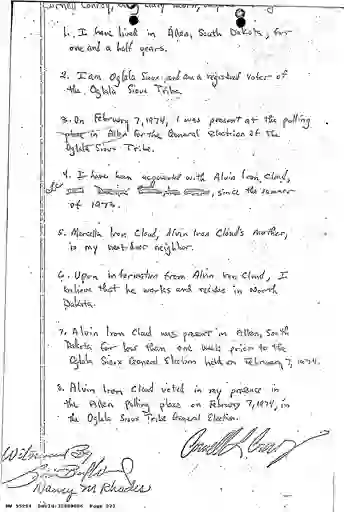 Cornell Conroy, being duly sworn,
1. I have lived in Allen, South Dakota, for
one and a half years.
2. I am Oglala Sioux and am a registered voter of
the Oglala Sioux Tribe.
3. On February 7, 1974, I was present at the polling
place in Allen for the General Election of the
Oglala Sioux Tribe.
4. I have been acquainted with Alvin Iron Cloud,
since the summer
of 1973.
5. Marcella Iron Cloud, Alvin Iron Cloud's mother,
is my next-door neighbor.
6. Upon information from Alvin Iron Cloud, I
believe that he works and reside in North
Dakota.
7. Alvin Iron Cloud was present in Allen, South
Dakota for less than one week prior to the
Oglala Sioux General Election held on February 7, 1974.
8. Alvin Iron Cloud voted in my presence in
the Allen Polling place on February 7, 1974, in
the Oglala Sioux Tribe General Election.
Witnessed By
Nancy M Rhodes
Page 222